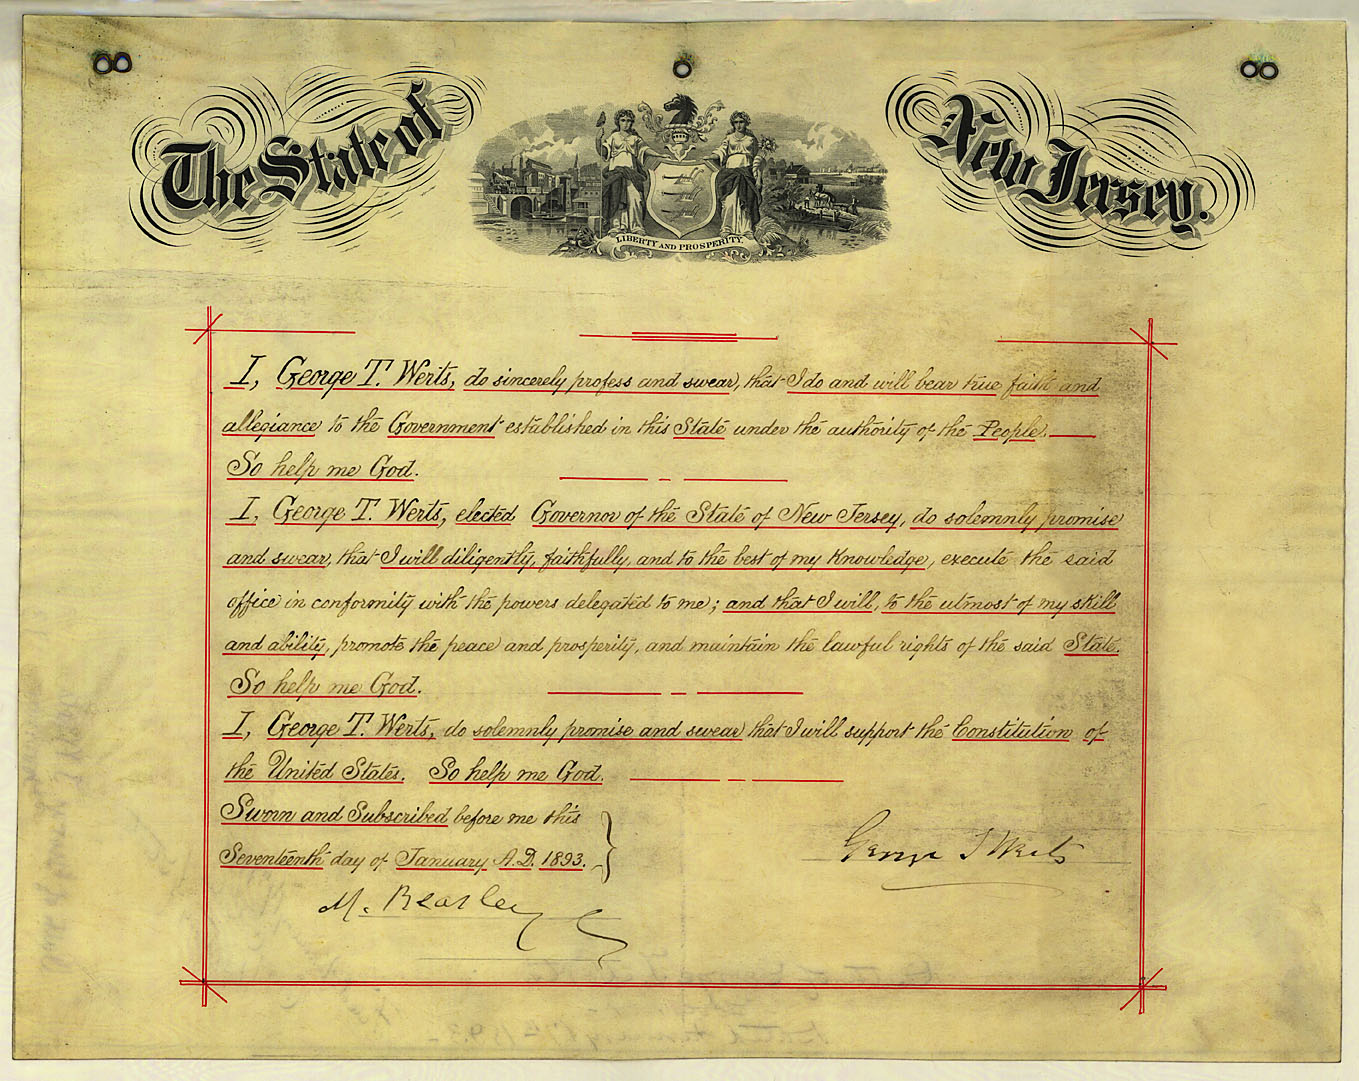 The State of New Jersey.
LIBERTY AND PROSPERITY.
I, George T. Werts, do sincerely profess and swear, that I do and will bear true faith and
allegiance to the Government established in this State under the authority of the People.
So help me God.
I, George T. Werts, elected Governor of the State of New Jersey, do solemnly promise
and swear, that I will diligently, faithfully, and to the best of my Knowledge, execute the said
office in conformity with the powers delegated to me; and that I will, to the utmost of my skill
and ability, promote the peace and prosperity, and maintain the lawful rights of the said State.
So help me God.
I, George T. Werts, do solemnly promise and swear that I will support the Constitution of
the United States. So help me God.
Sworn and Subscribed before me this
Seventeenth day of January A.D. 1893.
George T Werts
M. Beasley